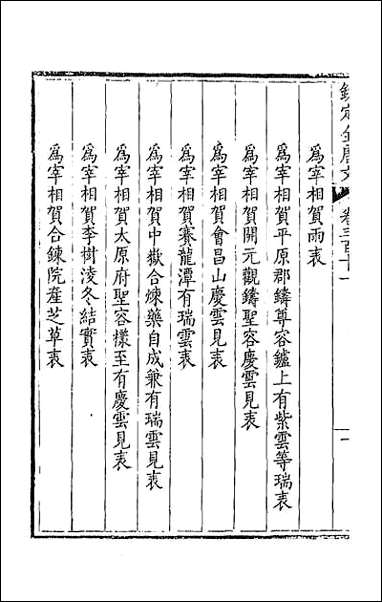 欽定全唐文 卷三百十一 一
爲宰相賀雨表
爲宰相賀平原郡鑄尊容鑪上有紫雲等瑞表
爲宰相賀開元觀鑄聖容慶雲見表
爲宰相賀會昌山慶雲見表
爲宰相賀賽龍潭有瑞雲表
爲宰相賀中嶽合煉藥自成兼有瑞雲見表
爲宰相賀太原府聖容樣至有慶雲見表
爲宰相賀李樹凌冬結實表
爲宰相賀合鍊院產芝草表